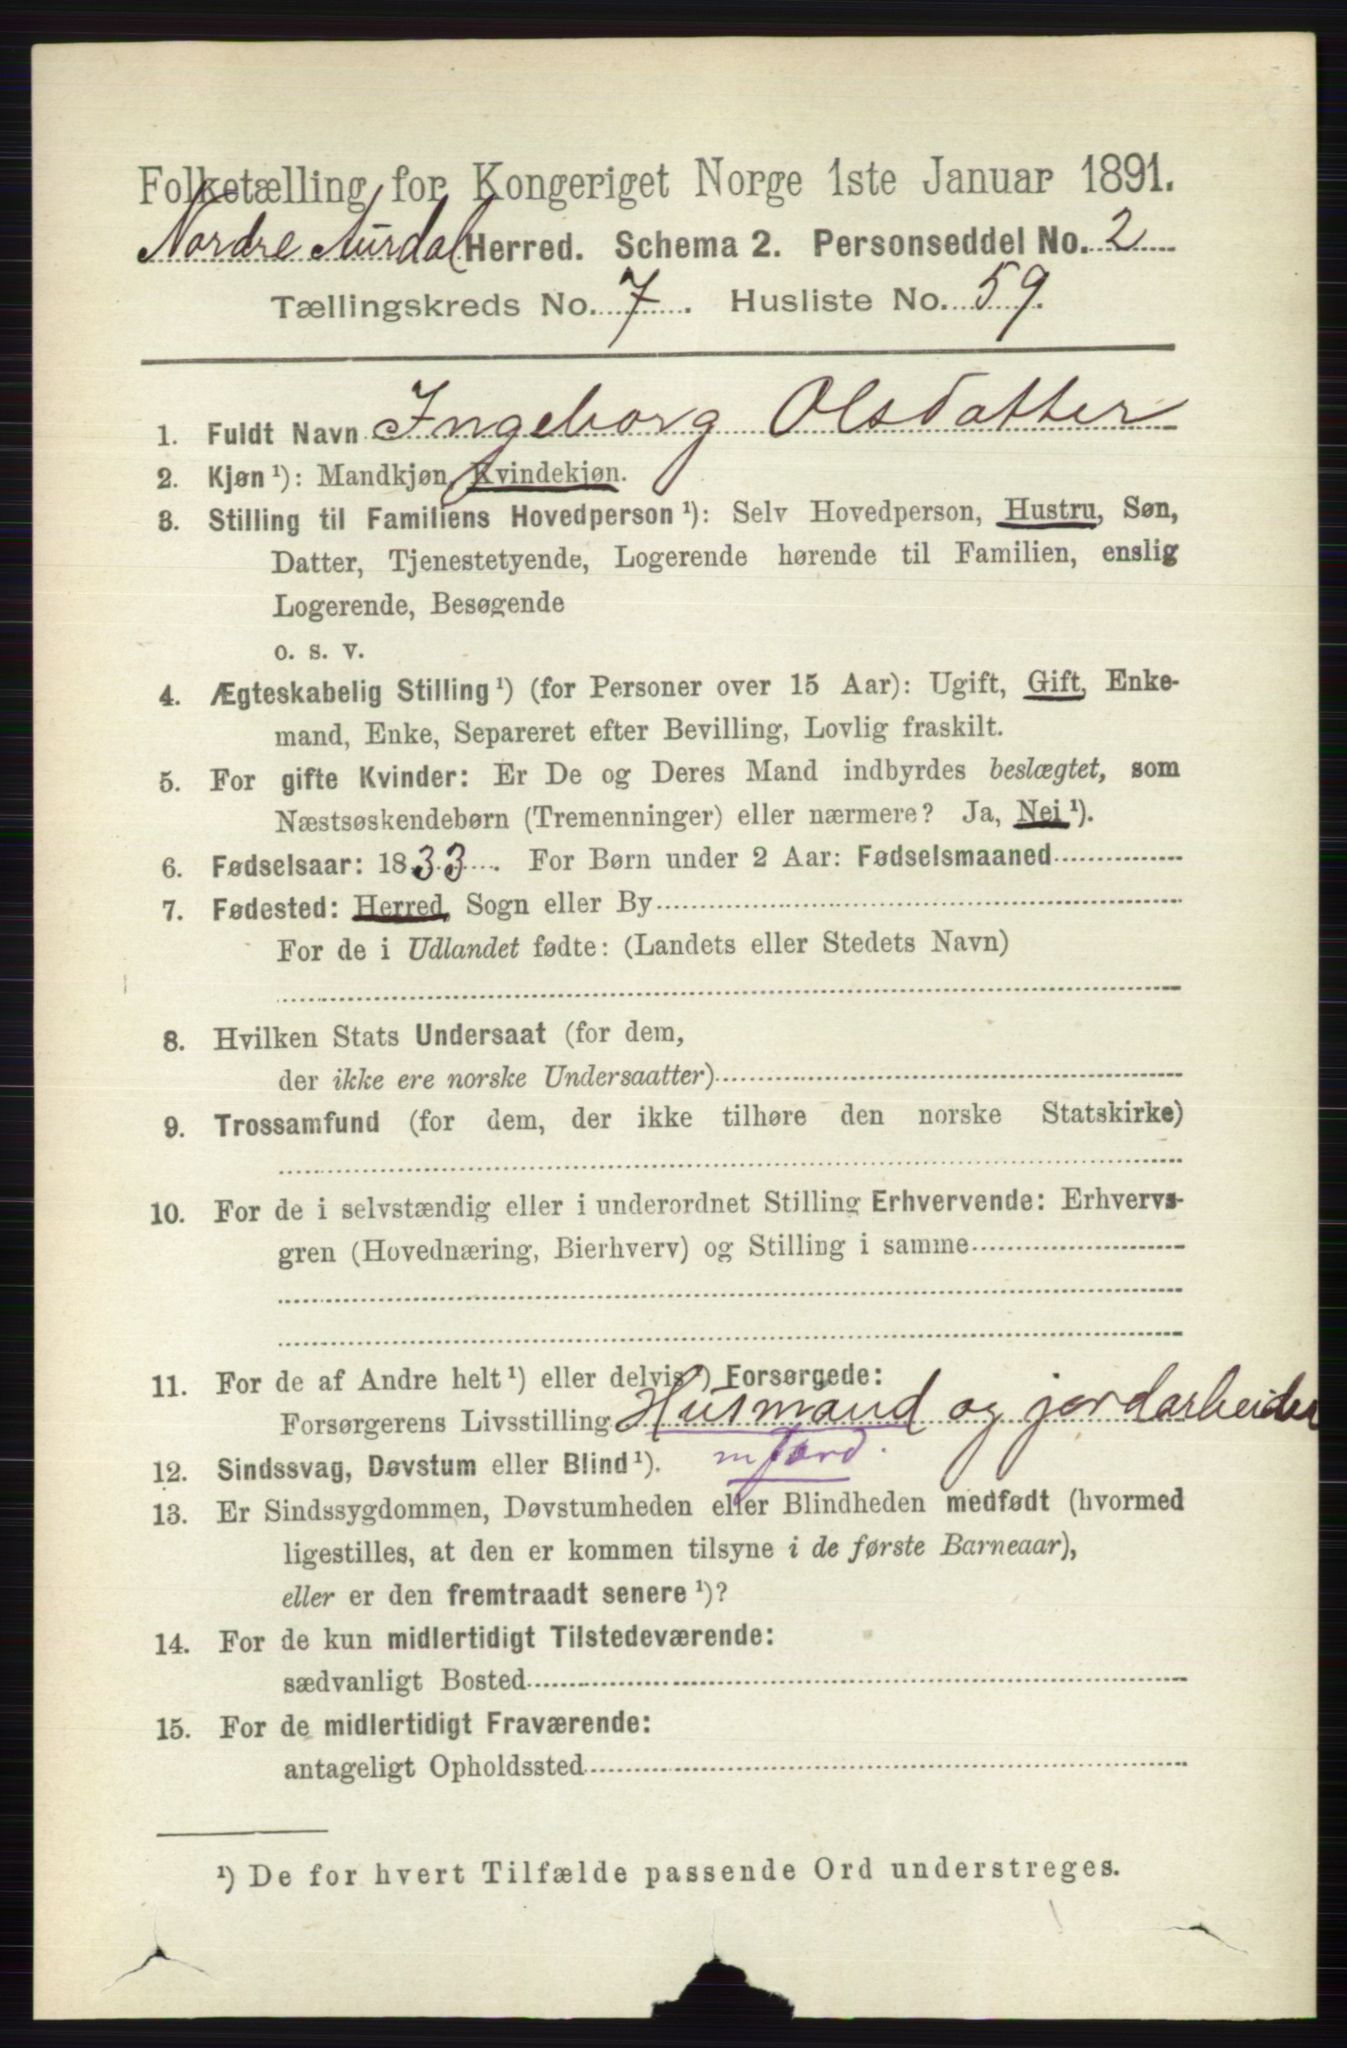 Folketælling for Kongeriget Norge 1ste Januar 1891.
Nordre Aurdal Herred. Schema 2. Personseddel No. 2
Tællingskreds No. 7. Husliste No. 59.
1. Fuldt Navn Ingeborg Olsdatter
2. Kjøn¹): Mandkjøn, Kvindekjøn.
3. Stilling til Familiens Hovedperson¹): Selv Hovedperson, Hustru, Søn,
Datter, Tjenestetyende, Logerende hørende til Familien, enslig
Logerende, Besøgende
o. s. v.
4. Ægteskabelig Stilling¹) (for Personer over 15 Aar): Ugift, Gift, Enke-
mand, Enke, Separeret efter Bevilling, Lovlig fraskilt.
5. For gifte Kvinder: Er De og Deres Mand indbyrdes beslægtet, som
Næstsøskendebørn (Tremenninger) eller nærmere? Ja, Nei¹).
6. Fødselsaar: 1833. For Børn under 2 Aar: Fødselsmaaned
7. Fødested: Herred, Sogn eller By
For de i Udlandet fødte: (Landets eller Stedets Navn)
8. Hvilken Stats Undersaat (for dem,
der ikke ere norske Undersaatter)
9. Trossamfund (for dem, der ikke tilhøre den norske Statskirke)
10. For de i selvstændig eller i underordnet Stilling Erhvervende: Erhvervs-
gren (Hovednæring, Bierhverv) og Stilling i samme
11. For de af Andre helt¹) eller delvis¹) Forsørgede:
Forsørgerens Livsstilling Husmand og jordarbeider
m jord.
12. Sindssvag, Døvstum eller Blind¹).
13. Er Sindssygdommen, Døvstumheden eller Blindheden medfødt (hvormed
ligestilles, at den er kommen tilsyne i de første Barneaar),
eller er den fremtraadt senere¹)?
14. For de kun midlertidigt Tilstedeværende:
sædvanligt Bosted
15. For de midlertidigt Fraværende:
antageligt Opholdssted
¹) De for hvert Tilfælde passende Ord understreges.